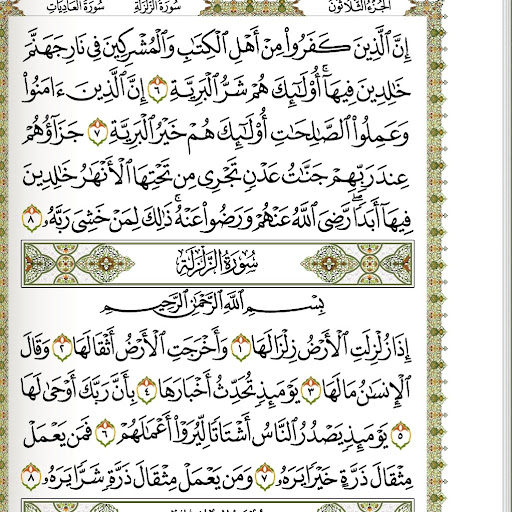 الجزء الثلاثون سورة الزلزلة سورة العاديات
إِنَّ الَّذِينَ كَفَرُوا مِنْ أَهْلِ الْكِتَابِ وَالْمُشْرِكِينَ فِي نَارِ جَهَنَّمَ
خَالِدِينَ فِيهَا ۚ أُولَٰئِكَ هُمْ شَرُّ الْبَرِيَّةِ ٦ إِنَّ الَّذِينَ ءَامَنُوا
وَعَمِلُوا الصَّالِحَاتِ أُولَٰئِكَ هُمْ خَيْرُ الْبَرِيَّةِ ٧ جَزَاؤُهُمْ
عِندَ رَبِّهِمْ جَنَّاتُ عَدْنٍ تَجْرِي مِن تَحْتِهَا الْأَنْهَارُ خَالِدِينَ
فِيهَا أَبَدًا ۖ رَّضِيَ اللَّهُ عَنْهُمْ وَرَضُوا عَنْهُ ۚ ذَٰلِكَ لِمَنْ خَشِيَ رَبَّهُ ٨
سُورَةُ الزَّلْزَلَةِ
بِسْمِ اللَّهِ الرَّحْمَٰنِ الرَّحِيمِ
إِذَا زُلْزِلَتِ الْأَرْضُ زِلْزَالَهَا ١ وَأَخْرَجَتِ الْأَرْضُ أَثْقَالَهَا ٢ وَقَالَ
الْإِنسَانُ مَا لَهَا ٣ يَوْمَئِذٍ تُحَدِّثُ أَخْبَارَهَا ٤ بِأَنَّ رَبَّكَ أَوْحَىٰ لَهَا
٥ يَوْمَئِذٍ يَصْدُرُ النَّاسُ أَشْتَاتًا لِّيُرَوْا أَعْمَالَهُمْ ٦ فَمَن يَعْمَلْ
مِثْقَالَ ذَرَّةٍ خَيْرًا يَرَهُ ٧ وَمَن يَعْمَلْ مِثْقَالَ ذَرَّةٍ شَرًّا يَرَهُ ٨